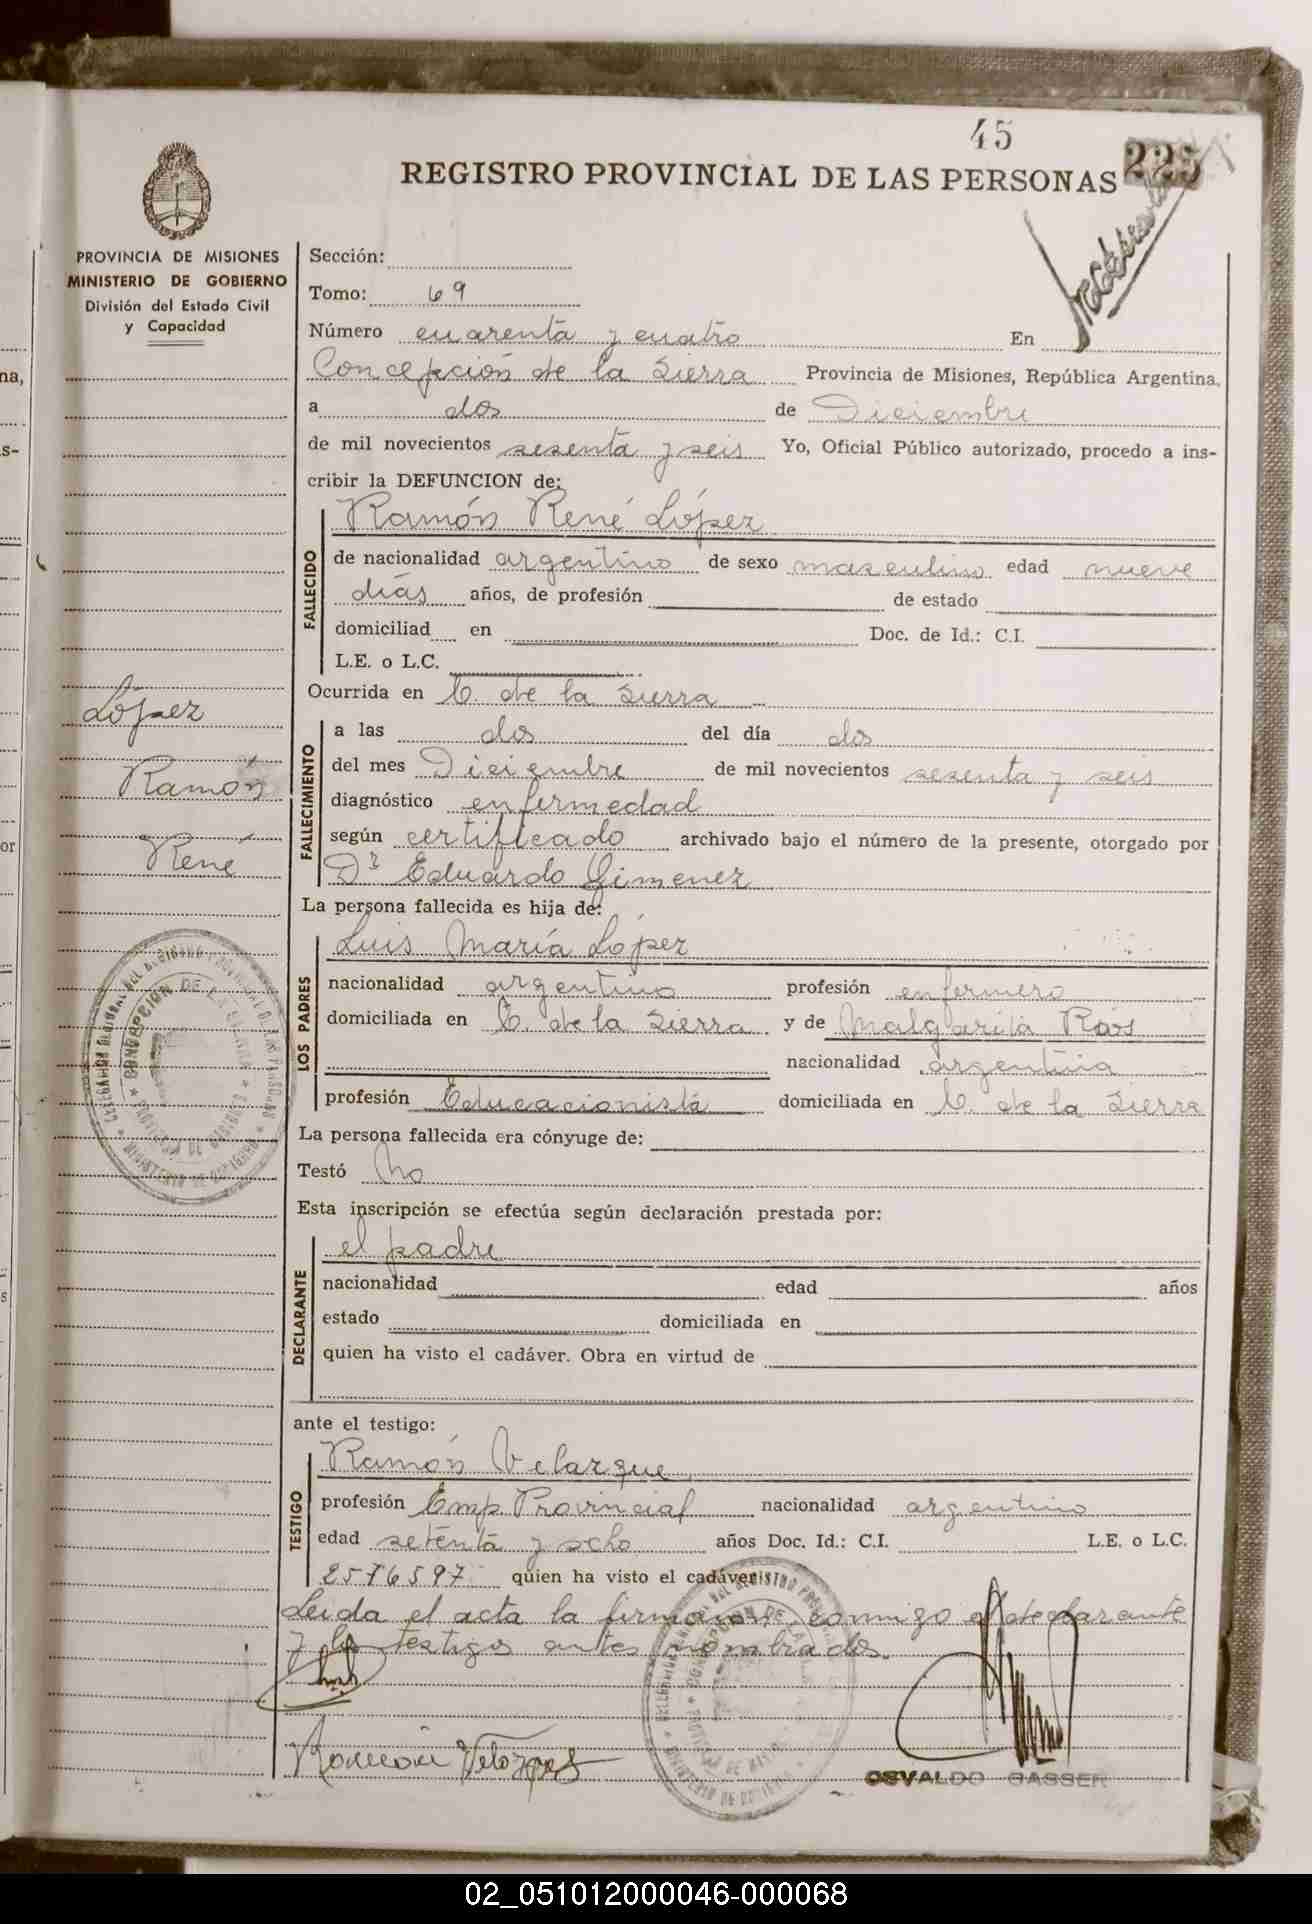 45
225
REGISTRO PROVINCIAL DE LAS PERSONAS
PROVINCIA DE MISIONES
MINISTERIO DE GOBIERNO
División del Estado Civil
y Capacidad
Sección:
Tomo: 69
Número cuarenta y cuatro En
Concepción de la Sierra Provincia de Misiones, República Argentina,
a dos de Diciembre
de mil novecientos sesenta y seis Yo, Oficial Público autorizado, procedo a ins-
cribir la DEFUNCION de:
FALLECIDO
Ramón René López
de nacionalidad argentino de sexo masculino edad nueve
días años, de profesión de estado
domiciliad en Doc. de Id.: C.I.
L.E. o L.C.
Ocurrida en C. de la Sierra
López
Ramón
René
FALLECIMIENTO
a las dos del día dos
del mes Diciembre de mil novecientos sesenta y seis
diagnóstico enfermedad
según certificado archivado bajo el número de la presente, otorgado por
Dr Eduardo Gimenez
La persona fallecida es hija de:
LOS PADRES
Luis María López
nacionalidad argentino profesión enfermero
domiciliada en C. de la Sierra y de Malgarita
nacionalidad argentina
profesión Educacionista domiciliada en C. de la Sierra
La persona fallecida era cónyuge de:
Testó No
Esta inscripción se efectúa según declaración prestada por:
DECLARANTE
el padre
nacionalidad edad años
estado domiciliada en
quien ha visto el cadáver. Obra en virtud de
ante el testigo:
TESTIGO
Ramón Velazque
profesión Emp. Provincial nacionalidad argentino
edad setenta y ocho años Doc. Id.: C.I. L.E. o L.C.
2576597 quien ha visto el cadáver.
Leida el acta la firman conmigo el declarante
y testigo antes nombrados.
OSVALDO GASSER
02_051012000046-000068